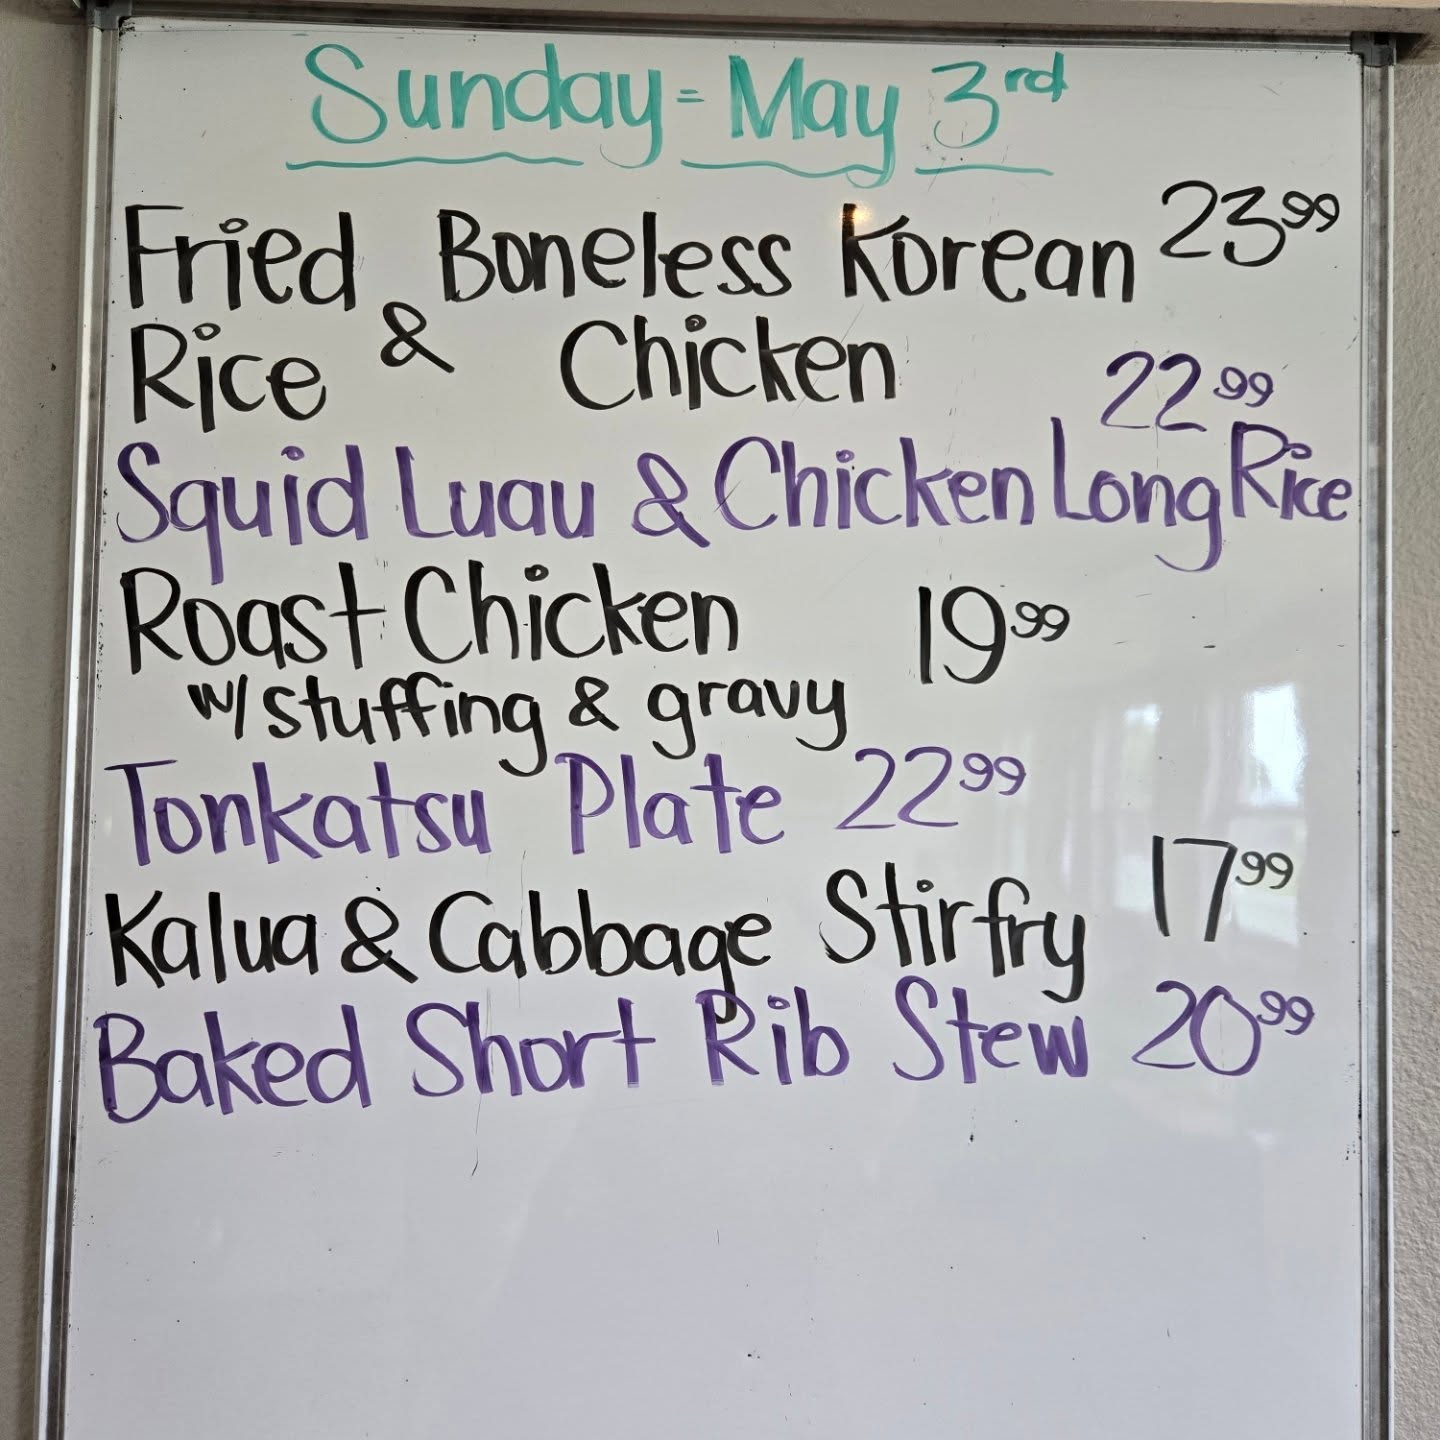 Sunday = May 3rd
Fried Boneless Korean 23.99
Rice & Chicken
22.99
Squid Luau & Chicken Long Rice
Roast Chicken 19.99
w/ stuffing & gravy
Tonkatsu Plate 22.99
Kalua & Cabbage Stirfry 17.99
Baked Short Rib Stew 20.99